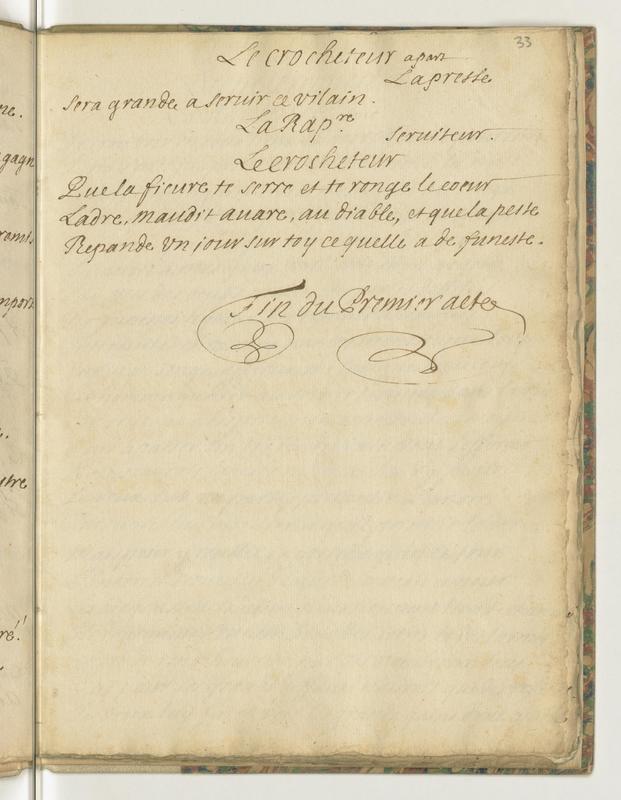 33
Le crocheteur apart
La presse
sera grande a seruir ce vilain.
La Rap.re
seruiteur.
Le crocheteur
Que la fieure te serre et te ronge le coeur
Ladre, maudit auare, au diable, et que la peste
Repande un jour sur toy ce quelle a de funeste.
Fin du Premier acte